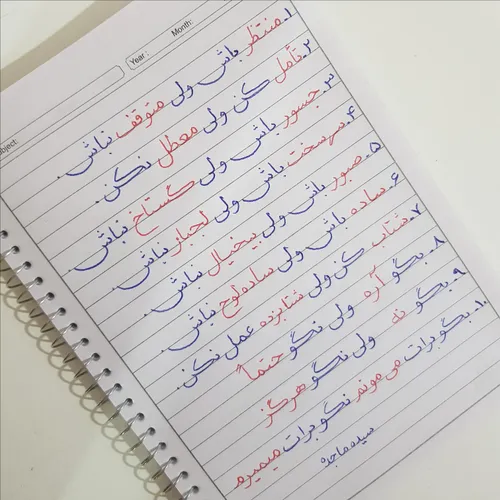 Year: Month:
ubject:
۱. منتظر باش ولی متوقف نباش.
۲. تأمل کن ولی معطل نکن.
۳. جسور باش ولی گستاخ نباش.
۴. سرسخت باش ولی لجباز نباش.
۵. صبور باش ولی بیخیال نباش.
۶. ساده باش ولی ساده‌لوح نباش.
۷. شتاب کن ولی شتابزده عمل نکن.
۸. بگو آره ولی نگو حتماً
۹. بگو نه ولی نگو هرگز
۱۰. بگو برات می‌مونم نگو برات میمیرم
سیده ماجده